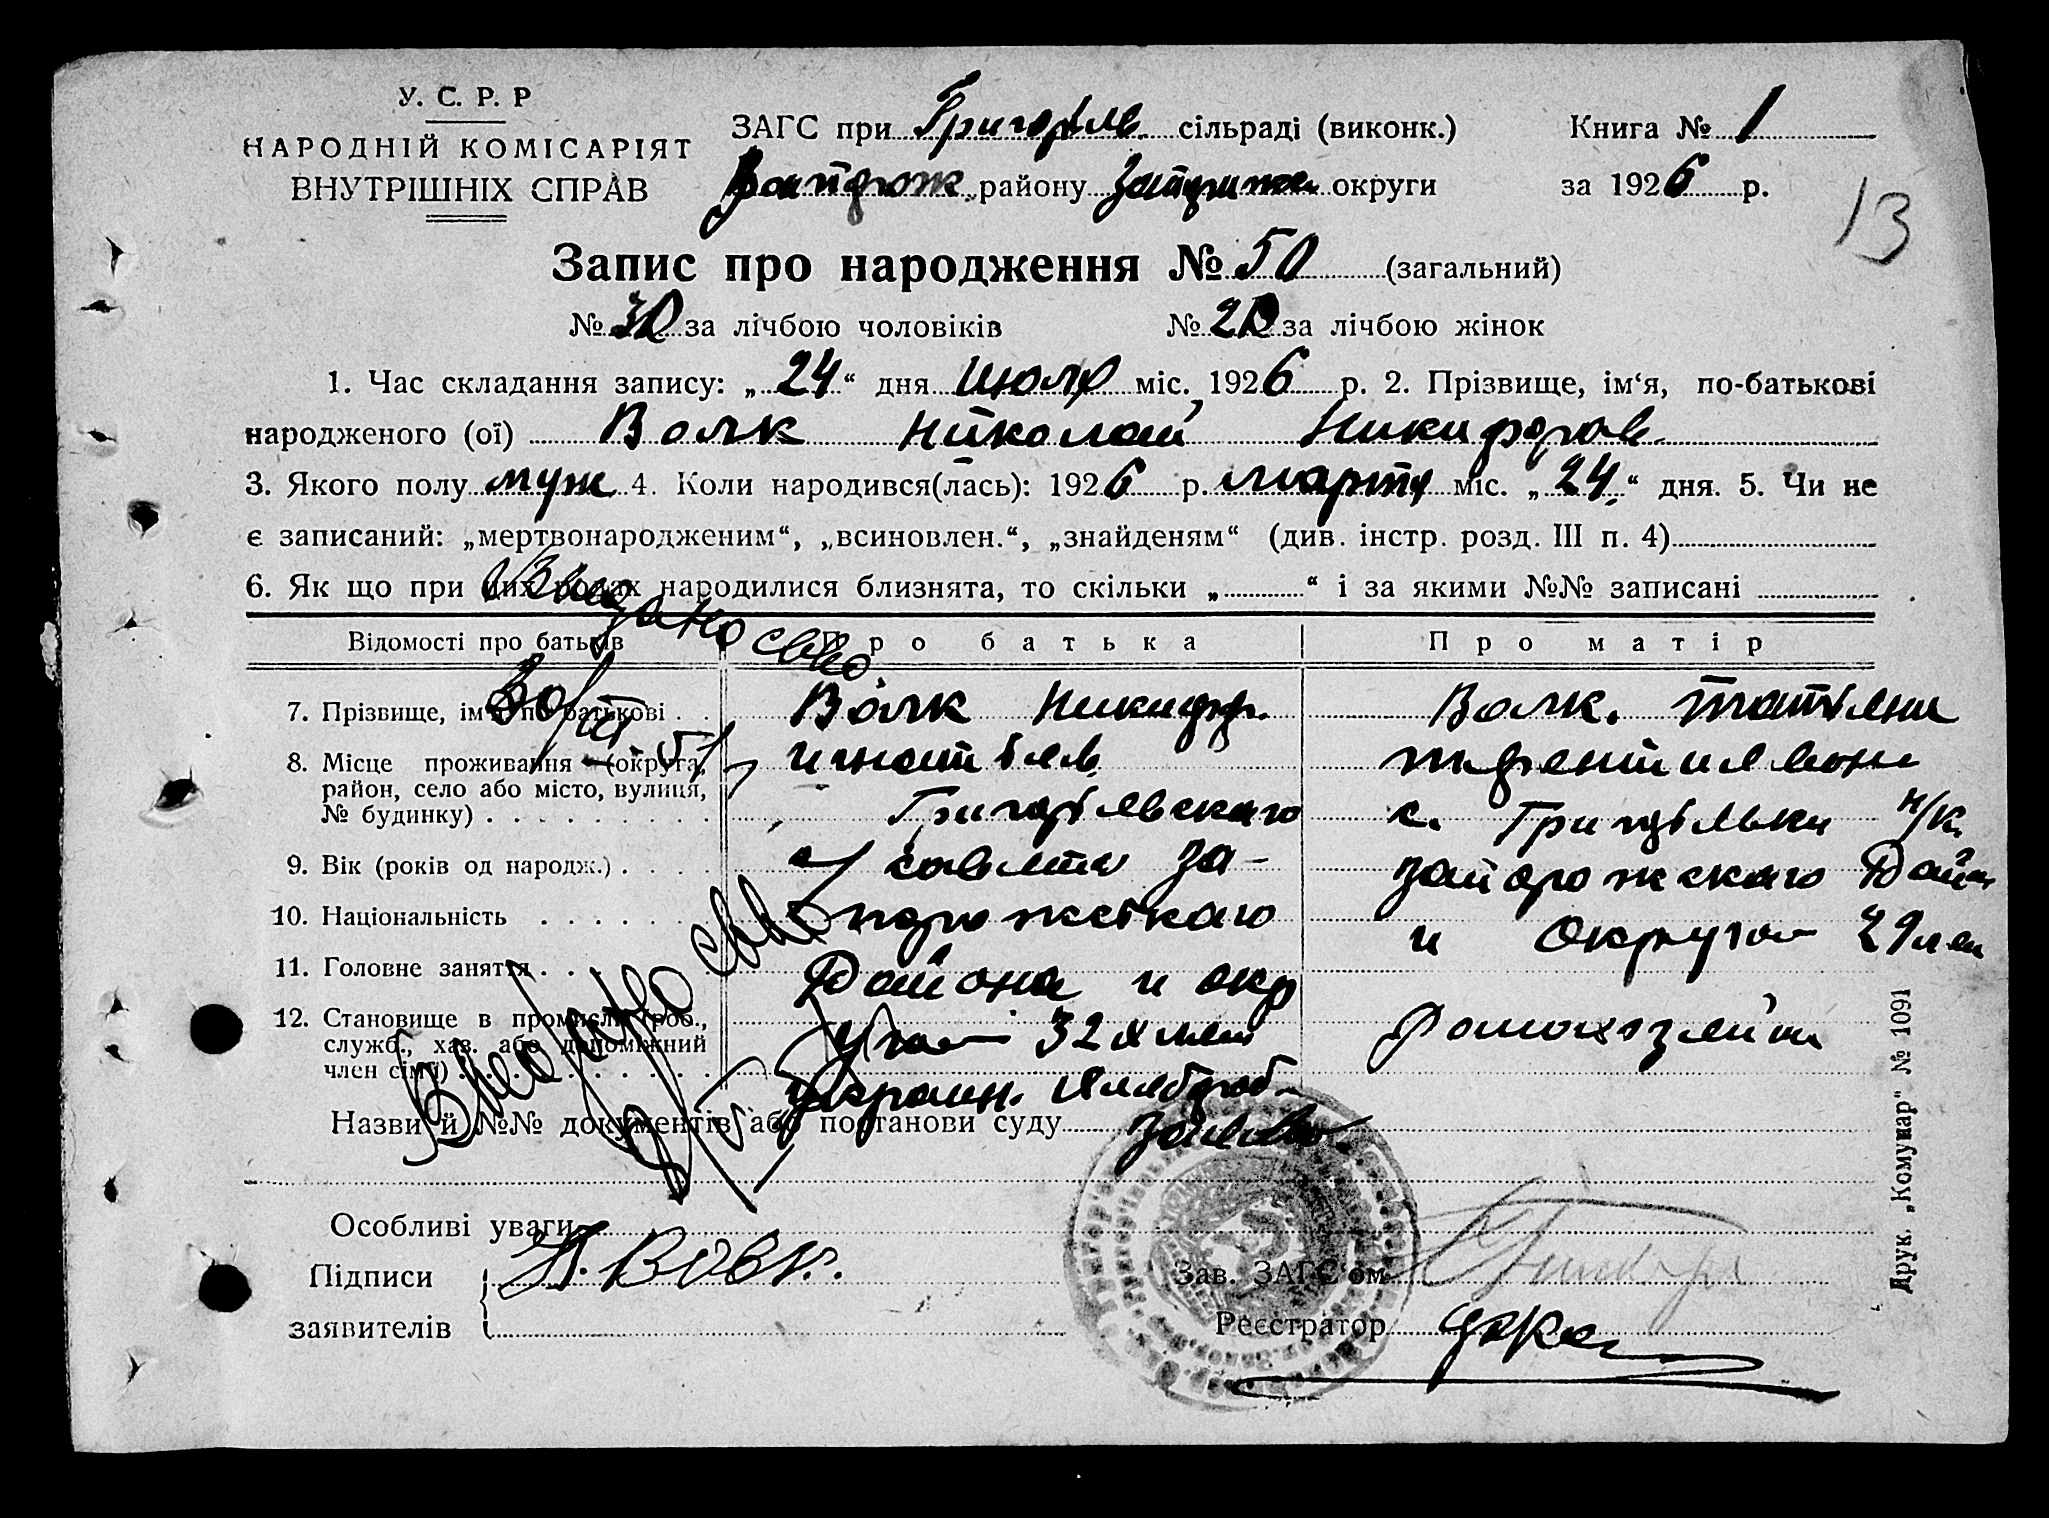 У. С. Р. Р
НАРОДНІЙ КОМІСАРІЯТ
ВНУТРІШНІХ СПРАВ
ЗАГС при Григорівле. сільраді (виконк.)
району округи
Книга № 1
за 1926 р.
13
Запис про народження № 50 (загальний)
№ 30 за лічбою чоловіків № 20 за лічбою жінок
1. Час складання запису: „ 24 “ дня Июля міс. 1926 р. 2. Прізвище, ім‘я, по-батькові
народженого (ої) Волк Николай Никифоров.
3. Якого полу муж 4. Коли народився(лась): 1926 р. марта міс. „ 24. “ дня. 5. Чи не
є записаний: „мертвонародженим“, „всиновлен.“, „знайденям“ (див. інстр. розд. III п. 4)
6. Як що при цих родах народилися близнята, то скільки „ “ і за якими №№ записані
Відомості про батьків Про батька Про матір
7. Прізвище, ім'я, по батькові Волк Никифор. Волк. Татіяна
8. Місце проживання (округа, район, село або місто, вулиця, № будинку)
9. Вік (років од народж.)
10. Національність
11. Головне заняття
12. Становище в промислі (роб., служб., хаз. або допоміжний член сім'ї)
Игнатіев
Григорівского
совета За-
порожского
Района и окр
уга 32х лет
Украин. Хлебороб
Терентиевна
с. Григорівки Н/К.
Запорожскаго Района
и Округа 29 лет
Домохозяйка
Видано свв
Видано свв
Назви й №№ документів або постанови суду
Особливі уваги
Підписи
заявителів
Н. Вовк.
Зав. ЗАГС'ом
Реєстратор
Друк. „Комунар“ № 1091